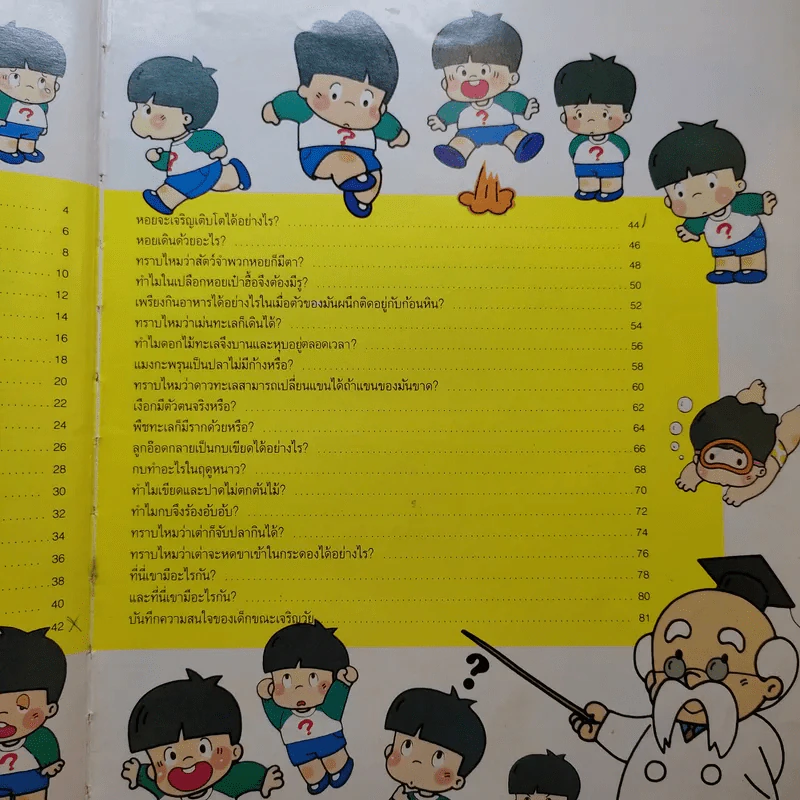 4
6
8
10
12
14
16
18
20
22
24
26
28
30
32
34
36
38
40
42
หอยจะเจริญเติบโตได้อย่างไร? 44
หอยเดินด้วยอะไร? 46
ทราบไหมว่าสัตว์จำพวกหอยก็มีตา? 48
ทำไมในเปลือกหอยเป๋าฮื้อจึงต้องมีรู? 50
เพรียงกินอาหารได้อย่างไรในเมื่อตัวของมันผนึกติดอยู่กับก้อนหิน? 52
ทราบไหมว่าเม่นทะเลก็เดินได้? 54
ทำไมดอกไม้ทะเลจึงบานและหุบอยู่ตลอดเวลา? 56
แมงกะพรุนเป็นปลาไม่มีก้างหรือ? 58
ทราบไหมว่าดาวทะเลสามารถเปลี่ยนแขนได้ถ้าแขนของมันขาด? 60
เงือกมีตัวตนจริงหรือ? 62
พืชทะเลก็มีรากด้วยหรือ? 64
ลูกอ๊อดกลายเป็นกบเขียดได้อย่างไร? 66
กบทำอะไรในฤดูหนาว? 68
ทำไมเขียดและปาดไม่ตกต้นไม้? 70
ทำไมกบจึงร้องอ้บอ้บ? 72
ทราบไหมว่าเต่าก็จับปลากินได้? 74
ทราบไหมว่าเต่าจะหดขาเข้าในกระดองได้อย่างไร? 76
ที่นี่เขามีอะไรกัน? 78
และที่นี่เขามีอะไรกัน? 80
บันทึกความสนใจของเด็กขณะเจริญวัย 81
?
?
?
?
?
?
?
?
?